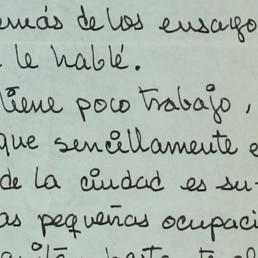 emás de los ensayo
le hablé.
tiene poco trabajo,
que sencillamente e
de la ciudad es su-
as pequeñas ocupaci